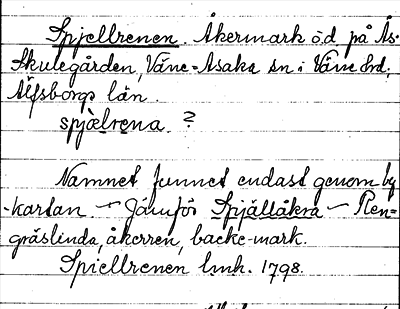 Spjellrenen. Åkermark ö.d på Ås-
Skulegården, Väne-Åsaka sn i Väne hd.
Älfsborgs län.
spjælrena. ?
Namnet funnet endast genom by
-kartan. — Jämför Spjällåkra — Ren=
gräslinda, åkerren, backe-mark.
Spiellrenen lmh. 1798.